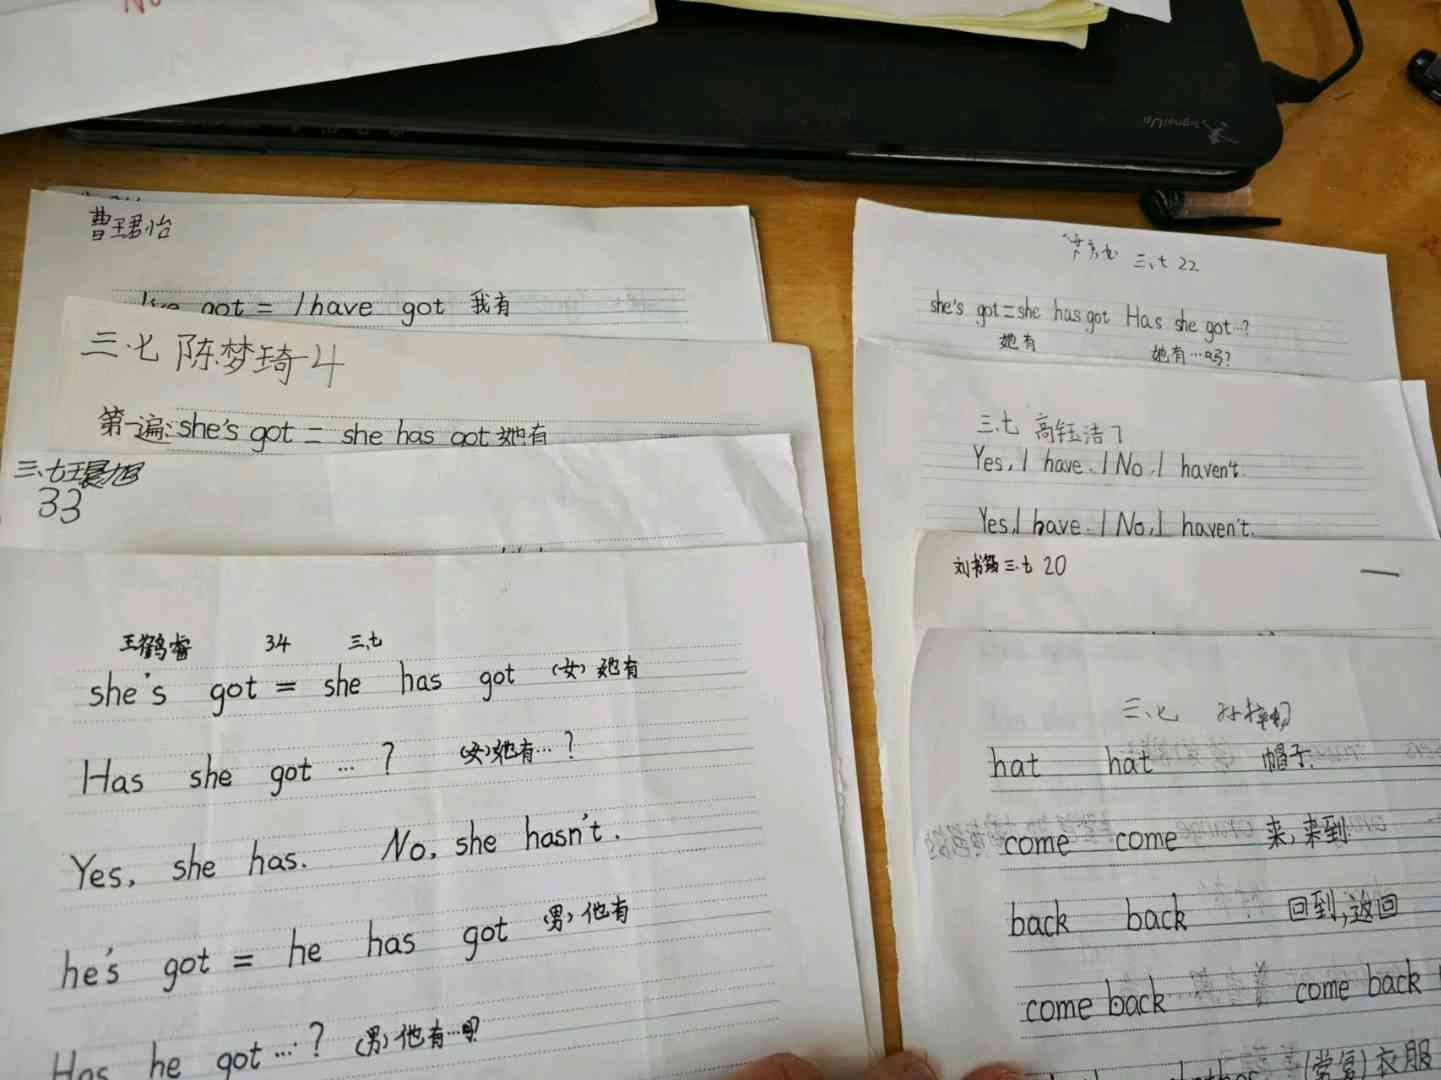 No
曹王君怡
I've got = I have got 我有
三.七 陈梦琦 4
第一遍: she's got = she has got 她有
三.七 王晨旭
33
王鹤睿 34 三.七
she's got = she has got (女)她有
Has she got … ? (女)她有… ?
Yes, she has. No, she hasn't.
he's got = he has got (男)他有
Has he got …? (男)他有…吗?
三.七 22
she's got = she has got Has she got …?
她有 她有…吗?
三.七 高钰洁 7
Yes, I have. / No, I haven't.
Yes, I have. / No, I haven't.
刘书 三.七 20
三.七 孙梓
hat hat 帽子
come come 来,来到
back back 回到,返回
come back come back
clothes (常复) 衣服